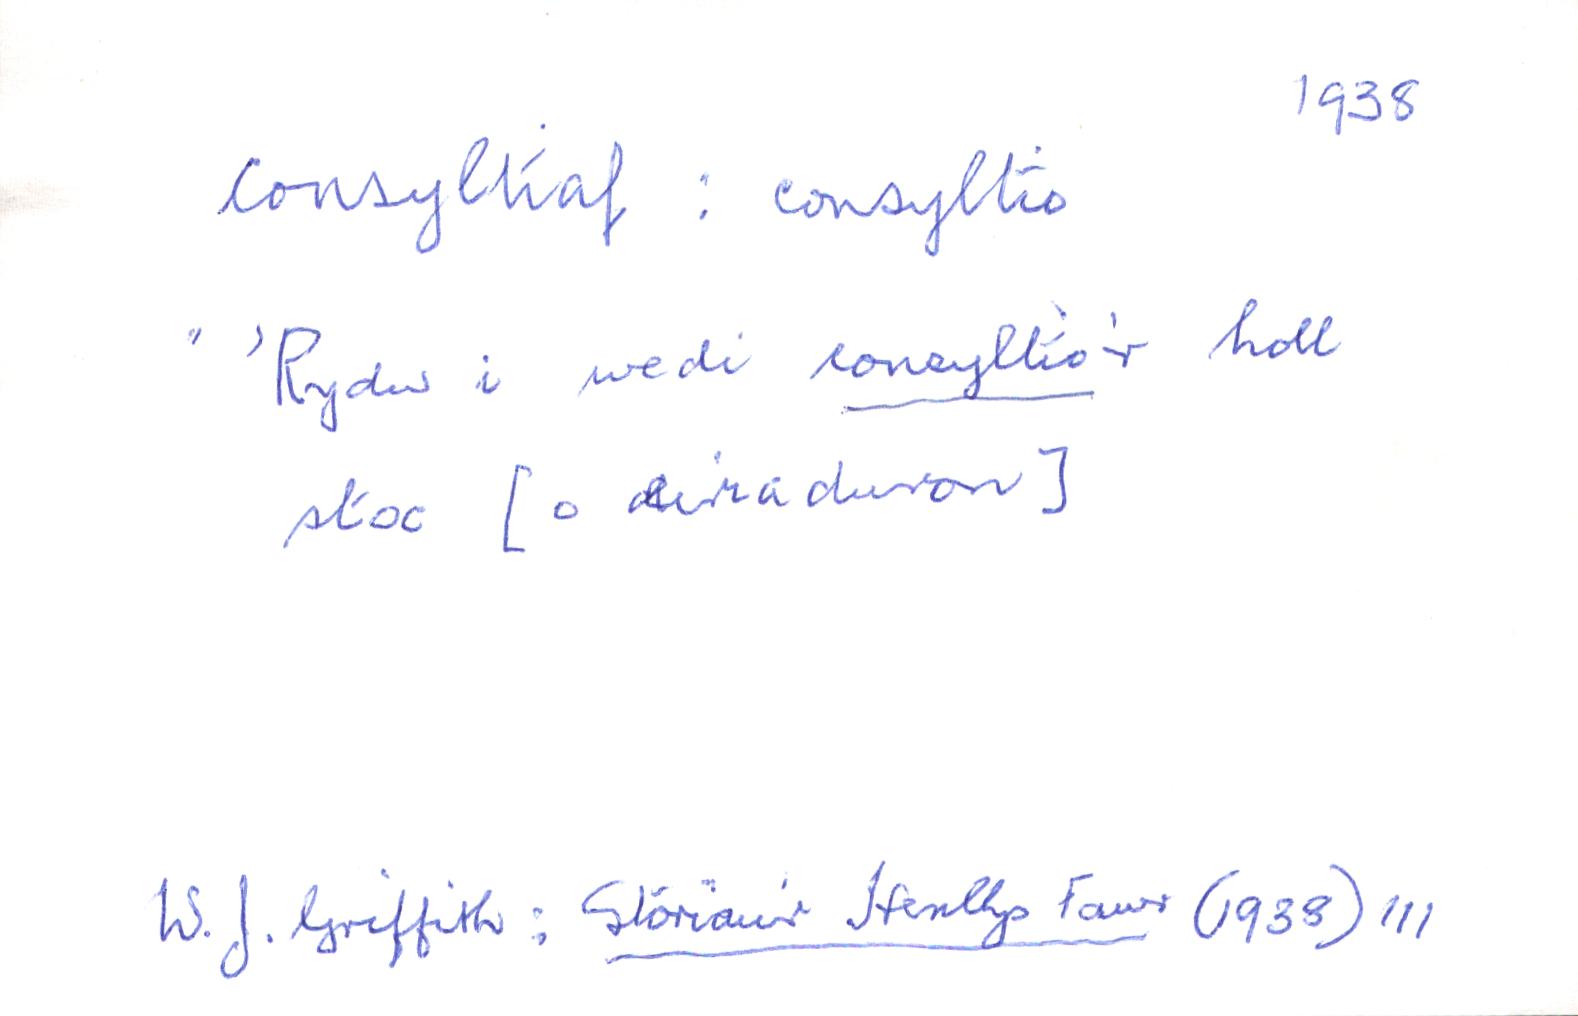 1938
consyltiaf : consyltio
" 'Rydw i wedi consyltio'r holl
stoc [o
W. J. Griffith : Storïau'r Henllys Fawr (1938) 111